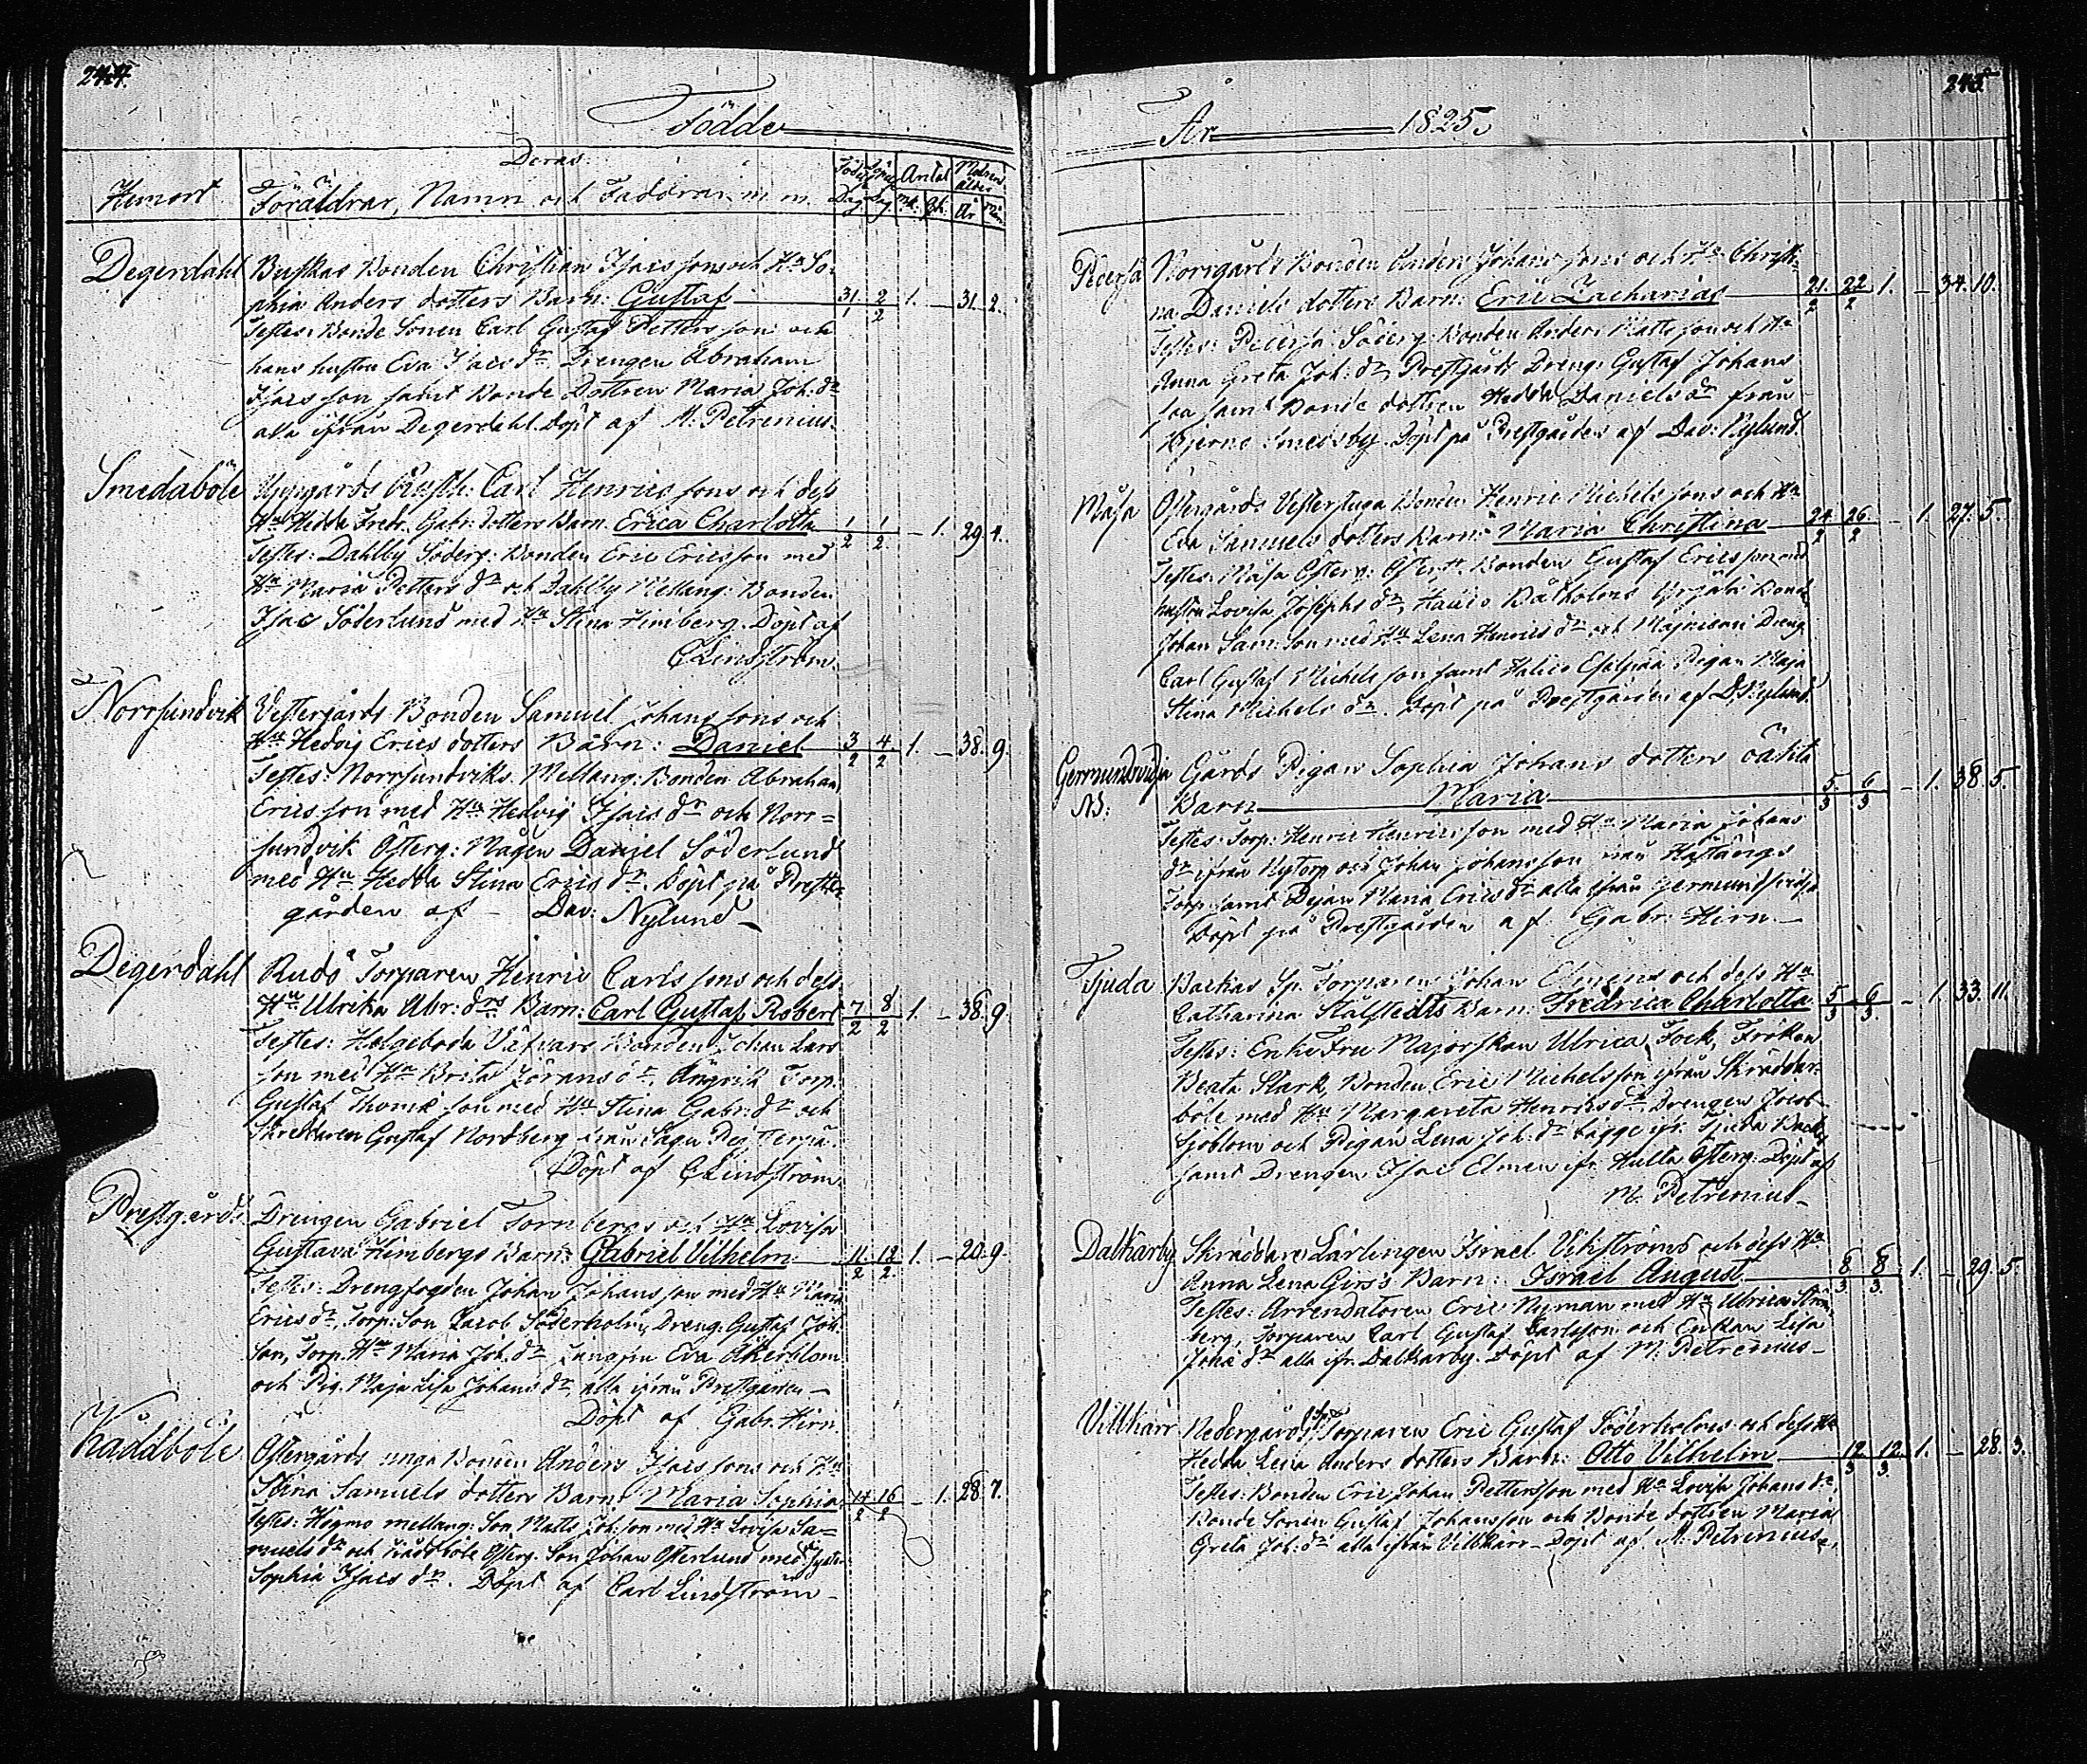 244.
Födde
Deras
Hemort Föräldrar, Namn och Faddrar m. m. Födel. Dag Döpel. Dag Antal Mk. Qk. Modrens ålder År Mån
Degerdahl Buskas Bonden Christian Isacssons och Hu So-
phia Anders dotters Barn: Gustaf 31/1 2/2 1. — 31. 2.
Testes: Bonde Sonen Carl Gustaf Pettersson och
hans hustru Eva Isacs dr. Drengen Abraham
Isacsson samt Bonde Dottren Maria Joh: dr
alla ifrån Degerdahl. Döpt af M: Petrenius.
Smedaböle Nygårds Rusth: Carl Henrics sons och dess
Hu Hedda Fredr. Gabr: dotters Barn. Erica Charlotta 1/2 1/2 — 1. 29. 4.
Testes: Dahlby Söderg: Bonden Eric Ericsson med
Hu Maria Petters dr och Dahlby Mellang: Bonden
Isac Söderlund med Hu Stina Himberg. Döpt af
C Lindström
Norrsundvik Vestergårds Bonden Samuel Johans sons och
Hu Hedvig Erics dotters Barn: Daniel 3/2 4/2 1. — 38. 9.
Testes: Norrsundviks Mellang: Bonden Abraham
Ericsson med Hu Hedvig Isacs dr och Norr=
sundvik Österg: Mågen Daniel Söderlund
med Hu Hedda Stina Erics dr. Döpt på Prest-
gården af — Dav: Nylund —
Degerdahl Rudö Torparen Henric Carls sons och dess
Hu Ulrika Abr: drs Barn: Carl Gustaf Robert 7/2 8/2 1. — 38. 9
Testes: Holgeboda Väfvars Bonden Johan Lars
son med Hu Brita Jörans dr. Ängvik Torp.
Gustaf Thomsson med Hu Stina Gabr: dr och
Skreddaren Gustaf Nordberg från Sagu
Döpt af C Lindström
Prestgård. Drengen Gabriel Tornbergs och Hu Lovisa
Gustava Himbergs Barn: Gabriel Vilhelm 11/2 12/2 1. — 20. 9.
Testes: Drengfogden Johan Johansson med Hu Maria
Erics dr, Torp: Son Jacob Söderholm, Dreng. Gustaf Joh:
son, Torp. Hu Maria Joh. dr Jungfru Eva Åkerblom
och Pig. Maja Lisa Johans dr alla ifrån Prestgården —
Döpt af Gabr. Hirn.
Kåddböle Östergårds unga Bonden Anders Isacs sons och Hu
Stina Samuels dotters Barn: Maria Sophia 14/2 16/2 — 1. 28. 7.
Testes: Högmo mellang: Son Matts Joh: son med Hu Lovisa Sa=
muels dr och Kåddböle Österg. Son Johan Österlund med Syster
Sophia Isacs dr. Döpt af Carl Lindström —
245
År 1825.
Pederså Norrgårds Bonden Anders Johans sons och Hu Christi-
na Daniels dotters Barn: Eric Zacharias 21/2 22/2 1. — 34. 10.
Testes: Pederså Söderg: Bonden Anders Mattsson och Hu
Anna Greta Joh: dr, Prestgårds Dreng: Gustaf Johans
son samt Bonde dottren Hedda Daniels dr från
Bjernå Smedsby. Döpt på Prestgården af Dav: Nylund.
Måsa Östergårds Vesterstuga Bonden Henric Michels sons och Hu
Eva Samuels dotters Barn: Maria Christina 24/2 26/2 — 1. 27. 5.
Testes: Måsa Österg: Bonden Gustaf Ericsson med
hustru Lovisa Josephs dr, Bond.
Johan Sam: son med Hu Lena Henrics dr och Dreng
Carl Gustaf Michelsson samt Pigan Maja
Stina Michels dr. Döpt på Prestgården af D. Nylund.
Germundsvedja Gårds Pigan Sophia Johans dotters oächta
NB: Barn Maria 5/3 6/3 — 1. 38. 5.
Testes: Torp: Henric Henricsson med Hu Maria Johans
dr ifrån Nytorp och Johan Johansson från
Torp samt Pigan Maria Erics dr alla ifrån Germundsvedja
Döpt på Prestgården af Gabr: Hirn —
Tjuda Backas Sp. Torparen Johan Elmens och dess Hu
Catharina Stålstedts Barn: Fredrica Charlotta 5/3 6/3 — 1. 33. 11.
Testes: Enke Fru Majorskan Ulrica Fock, Fröken
Beata Stark, Bonden Eric Michelsson ifrån Skräddar-
böle med Hu Margareta Henrics dr Drengen Jacob
Sjöblom och Pigan Lena Joh: dr bägge ifr. Tjuda Backas
samt Drengen Isac Elmen ifr. Hulta Österg: Döpt af
M. Petrenius —
Dalkarby Skräddare Lärlingen Israel Vikströms och dess Hu
Anna Lena Giers's Barn: Israel August 8/3 8/3 1. — 29. 5.
Testes: Arrendatoren Eric Nyman med Hu Ulrica Ström-
berg, Torparen Carl Gustaf Carlsson och Enkan Lisa
Johs dr alla ifr. Dalkarby. Döpt af M: Petrenius —
Villkärr Nedergårds Sp. Torparen Eric Gustaf Söderholms och dess Hu
Hedda Lena Anders dotters Barn: Otto Vilhelm 12/3 12/3 1. — 28. 3.
Testes: Bonden Eric Johan Pettersson med Hu Lovisa Johans dr,
Bonde Sonen Gustaf Johansson och Bonde dottren Maria
Greta Joh: dr alla ifrån Villkärr — Döpt af M. Petrenius.